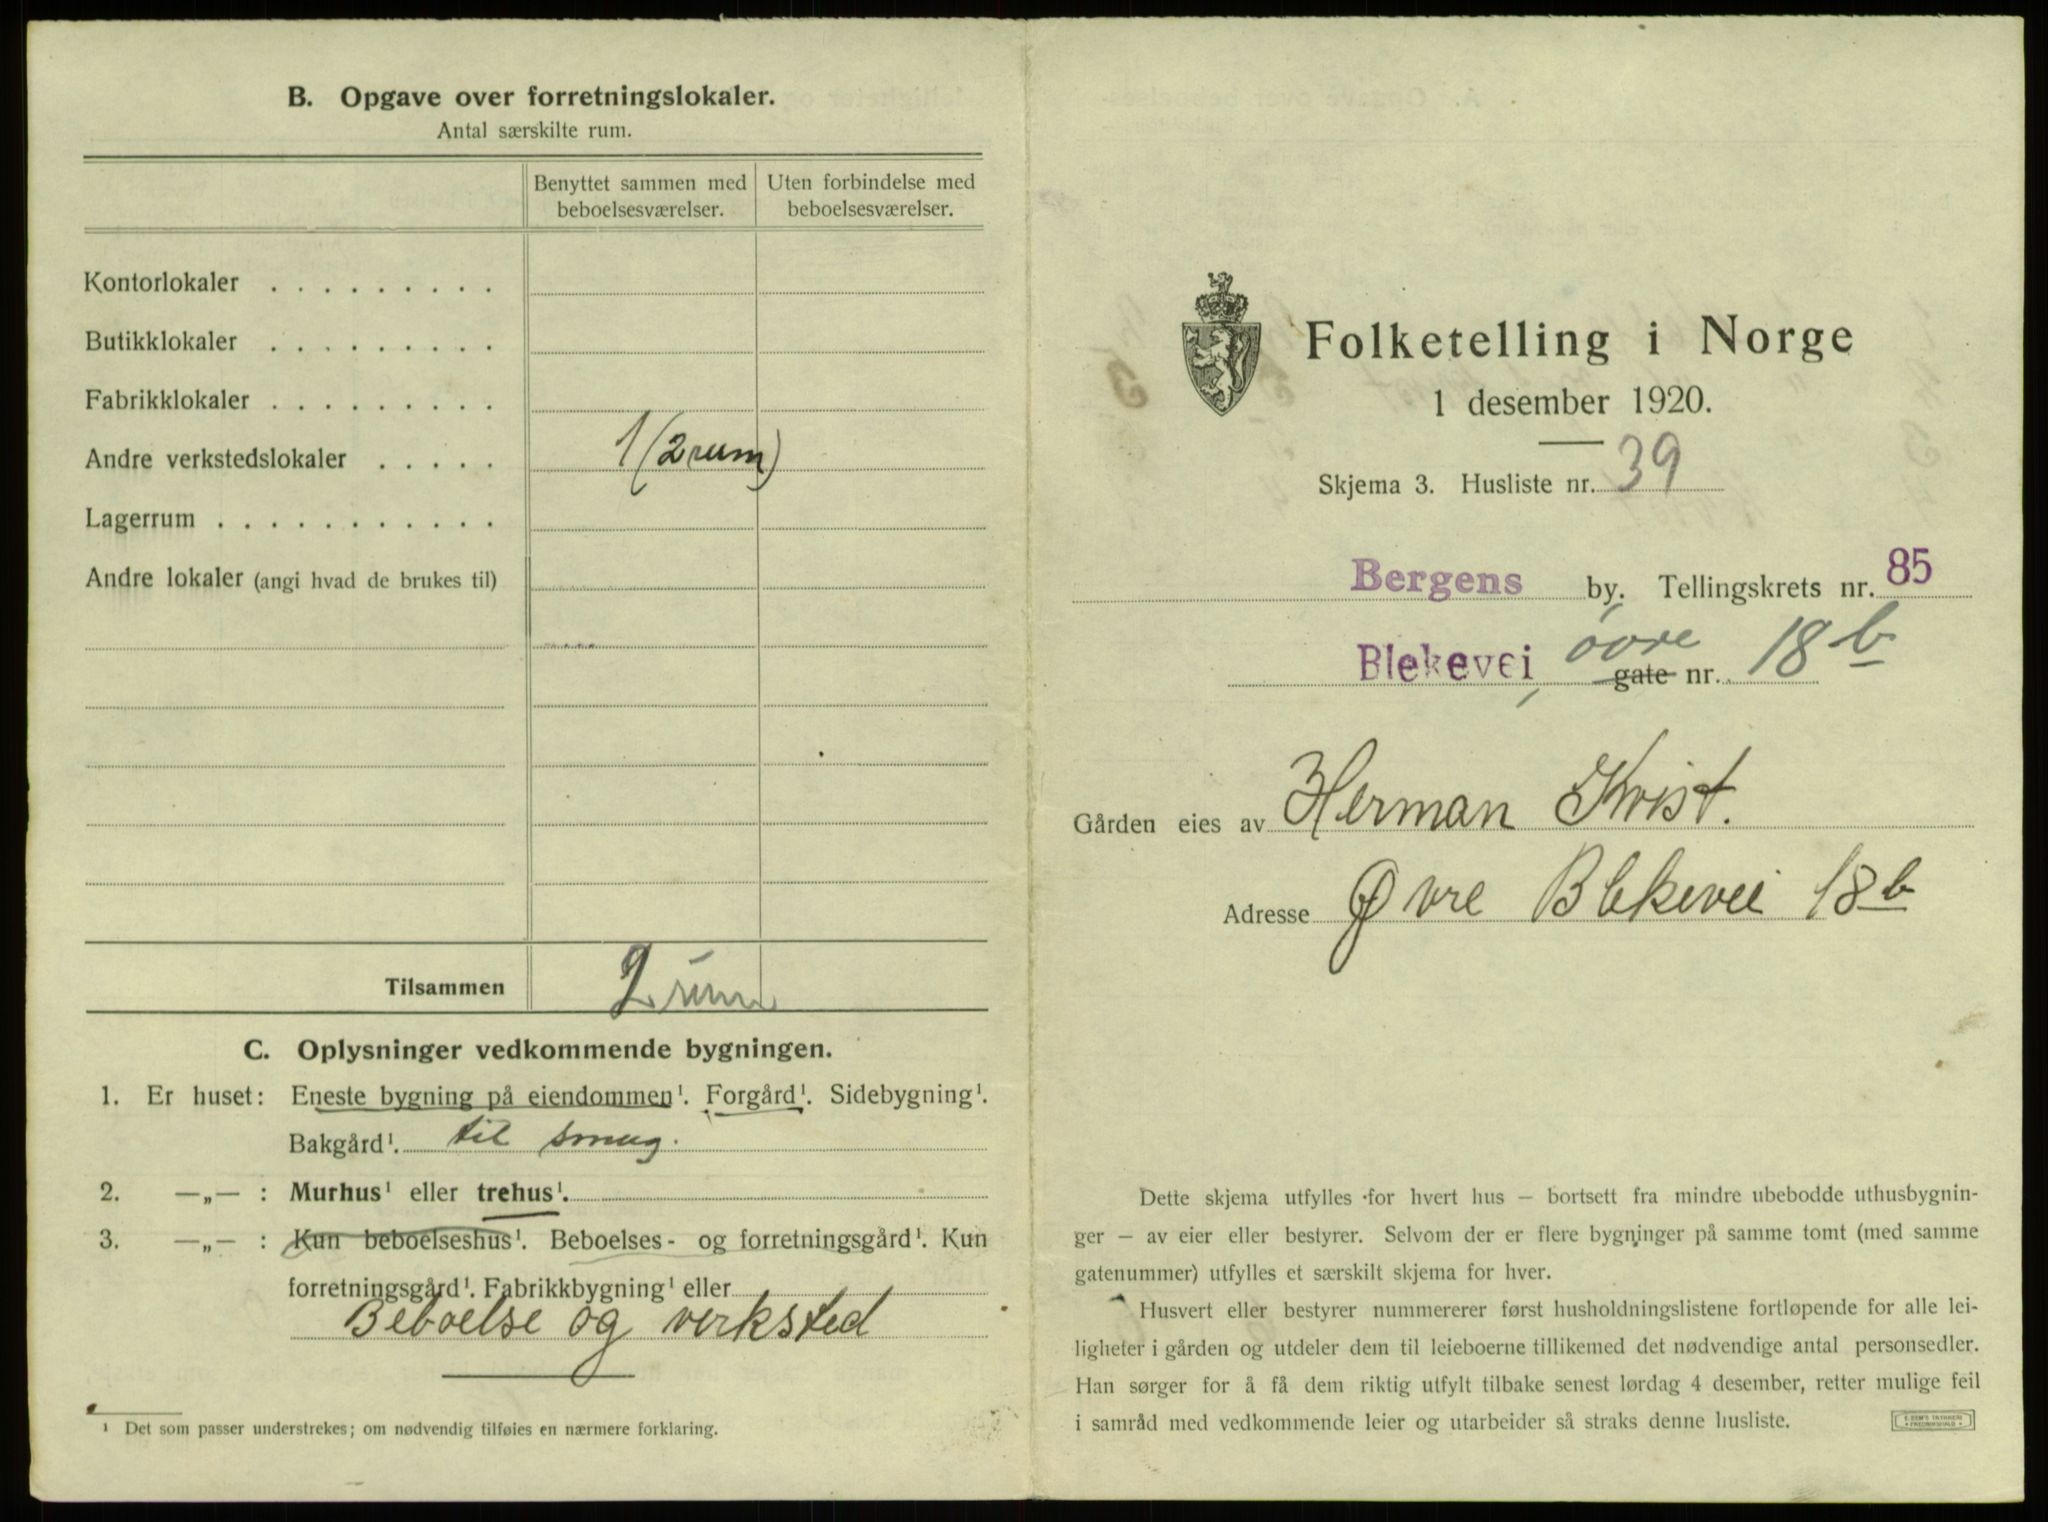 B. Opgave over forretningslokaler.
Antal særskilte rum.
Benyttet sammen med beboelsesværelser.
Uten forbindelse med beboelsesværelser.
Kontorlokaler . . . . . . . . .
Butikklokaler . . . . . . . . .
Fabrikklokaler . . . . . . . . .
Andre verkstedslokaler . . . . . 1 (2 rum)
Lagerrum . . . . . . . . . . .
Andre lokaler (angi hvad de brukes til)
Tilsammen 2 rum
C. Oplysninger vedkommende bygningen.
1. Er huset: Eneste bygning på eiendommen¹. Forgård¹. Sidebygning¹.
Bakgård¹. til smug.
2. —„— : Murhus¹ eller trehus¹.
3. —„— : Kun beboelseshus¹. Beboelses- og forretningsgård¹. Kun
forretningsgård¹. Fabrikkbygning¹ eller
Beboelse og verksted
¹ Det som passer understrekes; om nødvendig tilføies en nærmere forklaring.
Folketelling i Norge
1 desember 1920.
Skjema 3. Husliste nr. 39
Bergens by. Tellingskrets nr. 85
Blekevei, øvre gate nr. 18 b
Gården eies av Herman Kvist.
Adresse Øvre Blekevei 18 b
Dette skjema utfylles for hvert hus — bortsett fra mindre ubebodde uthusbygnin-
ger — av eier eller bestyrer. Selvom der er flere bygninger på samme tomt (med samme
gatenummer) utfylles et særskilt skjema for hver.
Husvert eller bestyrer nummererer først husholdningslistene fortløpende for alle lei-
ligheter i gården og utdeler dem til leieboerne tillikemed det nødvendige antal personsedler.
Han sørger for å få dem riktig utfylt tilbake senest lørdag 4 desember, retter mulige feil
i samråd med vedkommende leier og utarbeider så straks denne husliste.